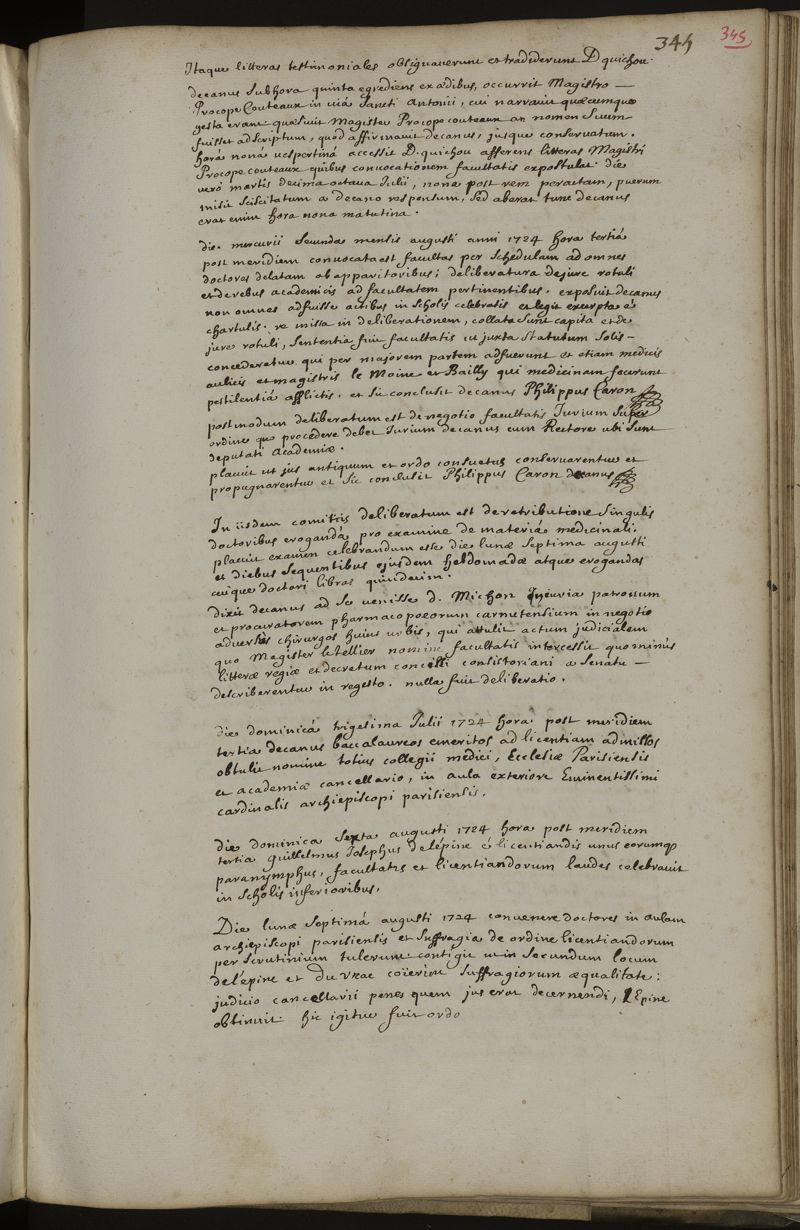 344
345
Itaque litteras testimoniales obsignaverunt et tradiderunt D quichou.
decanus sub hora quinta egrediens ex ædibus, occurrit Magistro
Procope Couteaux in viâ Sancti Antonii, cui narravit quæcumque
gesta erant. quæsivit Magister Procope couteaux an nomen suum
fuisset adscriptum, quod affirmavit decanus, jusque conservatum.
horâ nonâ vespertinâ accessit D. quichou afferens litteras Magistri
Procope couteaux quibus convocationem facultatis expostulat. die
vero martis decima octava Julii, nona post rem peractam, puerum
misit sciscitatum a decano responsum, sed aberat tunc decanus
erat enim hora nona matutina.
die. mercurii secunda mensis augusti anni 1724 hora tertiâ
post meridiem convocata est facultas per schedulam ad omnes
doctores delatam ab apparitoribus; deliberatura de jure rotuli
et de rebus academicis ad facultatem pertinentibus. exposuit decanus
non omnes adfuisse actibus in scholis celebratis et legit excerpta è
chartulis. re missa in deliberationem, collata sunt capita et de
jure rotuli, sententia fuit facultatis ut juxta statutum solis
concederetur qui per majorem partem adfuerunt et etiam medicis
aulicis et magistris le Moine et Bailly qui medicinam fecerunt
pestilentiâ afflictis. et sic conclusit decanus Philippus Caron
postmodum deliberatum est de negotio facultatis Jurium super
ordine quo procedere debet Jurium decanus cum Rectore ubi sunt
deputati academiæ.
placuit ut jus antiquum et ordo consuetus conservarentur et
propugnarentur et sic conclusit Philippus Caron decanus
In iisdem comitiis deliberatum est de retributione singulis
doctoribus erogandâ pro examine de materiâ medicinali.
placuit examen celebrandum esse die lunæ septima augusti
et diebus sequentibus ejusdem hebdomadæ atque erogandas
cuique doctori libras quindecim.
dixit decanus ad se venisse d. Michon in curia patronum
et procuratorem pharmacopœorum carnutensium in negotio
adversus chirurgos huius urbis, qui attulit actum judicialem
quo Magister letellier nomine facultatis intercessit quominus
litteræ regiæ et decretum concilii consistoriani a senatu
describerentur in regesto. nulla fuit deliberatio.
die dominicâ trigesima Julii 1724 hora post meridiem
tertia decanus baccalaureos emeritos ad licentiam admissos
obtulit nomine totius collegii medici, Ecclesiæ Parisiensis
et academiæ cancellario, in aula exteriore Eminentissimi
cardinalis archiepiscopi parisiensis.
die dominica sexta augusti 1724 hora post meridiem
tertia guillelmus Josephus delépine è licentiandis unus eorumq
paranymphus, facultatis et licentiandorum laudes celebravit
in scholis inferioribus.
Die lunæ septimâ augusti 1724 convenere doctores in aulam
archiepiscopi parisiensis et suffragia de ordine licentiandorum
per scrutinium tulerunt contigit ut in secundum locum
delépine et du vrac coierint suffragiorum æqualitate:
judicio cancellarii penes quem jus erat decernendi, lEpine
obtinuit. hic igitur fuit ordo